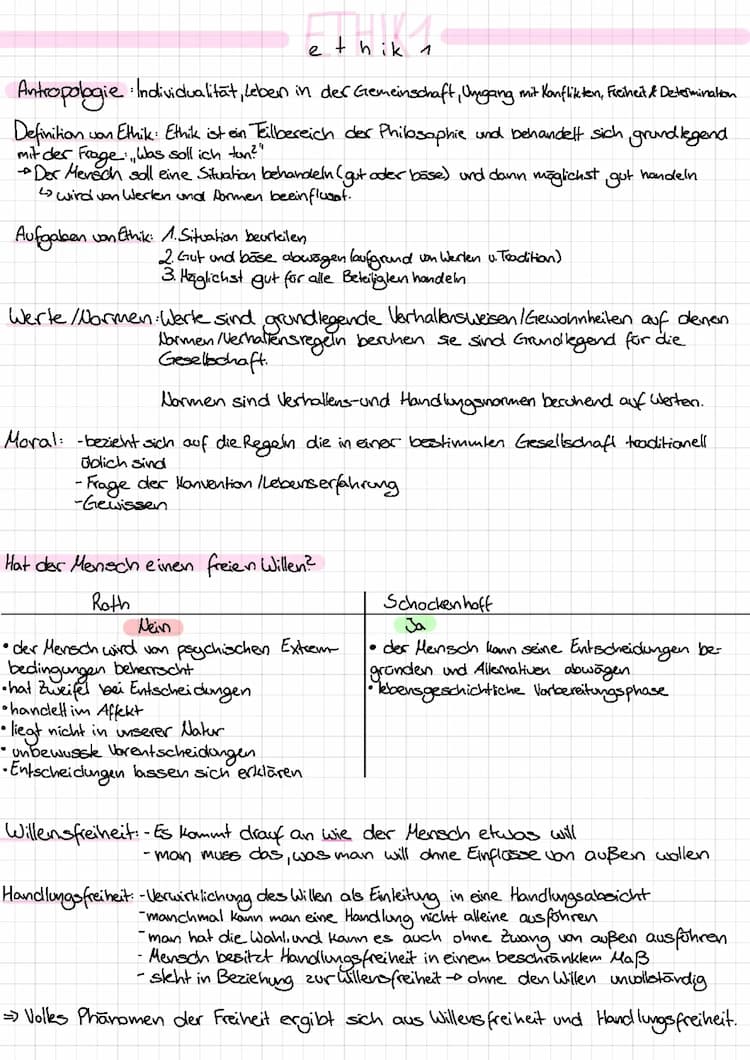 ETHIK1
ethik 1
Antropologie: Individualität, Leben in der Gemeinschaft, Umgang mit Konflikten, Freiheit & Determination
Definition von Ethik: Ethik ist ein Teilbereich der Philosophie und behandelt sich grundlegend
mit der Frage: „Was soll ich tun?"
→ Der Mensch soll eine Situation behandeln (gut oder böse) und dann möglichst gut handeln
↳ wird von Werten und Normen beeinflusst.
Aufgaben von Ethik: 1. Situation beurteilen
2. Gut und böse abwägen (aufgrund von Werten u. Tradition)
3. Möglichst gut für alle Beteiligten handeln
Werte/Normen: Werte sind grundlegende Verhaltensweisen/Gewohnheiten auf denen
Normen/Verhaltensregeln beruhen sie sind Grundlegend für die
Gesellschaft.
Normen sind Verhaltens- und Handlungsnormen beruhend auf Werten.
Moral: - bezieht sich auf die Regeln die in einer bestimmten Gesellschaft traditionell
üblich sind
- Frage der Konvention/Lebenserfahrung
- Gewissen
Hat der Mensch einen freien Willen?
Roth Schockenhoff
Nein Ja
• der Mensch wird von psychischen Extrem-
bedingungen beherrscht
• hat Zweifel bei Entscheidungen
• handelt im Affekt
• liegt nicht in unserer Natur
• unbewusste Vorentscheidungen
• Entscheidungen lassen sich erklären
• der Mensch kann seine Entscheidungen be-
gründen und Alternativen abwägen
• lebensgeschichtliche Vorbereitungsphase
Willensfreiheit: - Es kommt drauf an wie der Mensch etwas will
- man muss das, was man will ohne Einflüsse von außen wollen
Handlungsfreiheit: - Verwirklichung des Willen als Einleitung in eine Handlungsabsicht
- manchmal kann man eine Handlung nicht alleine ausführen
- man hat die Wahl, und kann es auch ohne Zwang von außen ausführen
- Mensch besitzt Handlungsfreiheit in einem beschränktem Maß
- steht in Beziehung zur Willensfreiheit → ohne den Willen unvollständig
⇒ Volles Phänomen der Freiheit ergibt sich aus Willensfreiheit und Handlungsfreiheit.